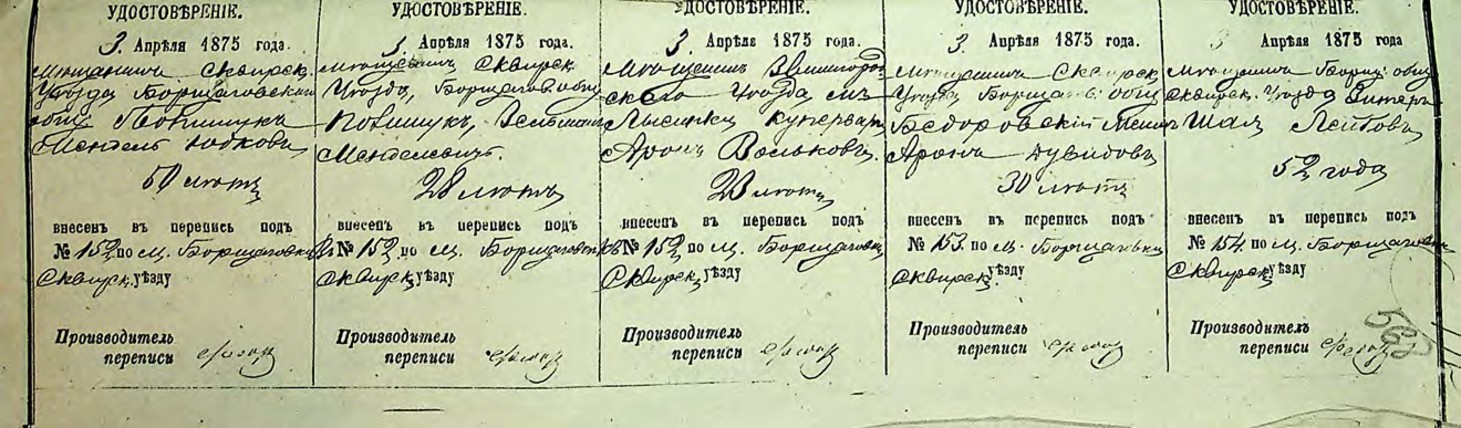 УДОСТОВѢРЕНІЕ.
3. Апрѣля 1875 года.
Мѣщанинъ Сквирск.
Уѣзда Борщаговскаго
общ.
Мендель Юдковъ
лѣтъ
внесенъ въ перепись подъ
№ 152 по м. Борщаговка
Сквирск. уѣзду
Производитель
переписи
УДОСТОВѢРЕНІЕ.
3. Апрѣля 1875 года.
Мѣщанинъ Сквирск.
Уѣзда, Борщагов. общ.
Повищукъ,
Менделевичъ.
28 лѣтъ
внесенъ въ перепись подъ
№ 152 по м. Борщаговка
Сквирск. уѣзду
Производитель
переписи
УДОСТОВѢРЕНІЕ.
3 Апрѣля 1875 года.
Мѣщанинъ Звенигород
скаго Уѣзда м.
Лысянки Куперваръ
Аронъ Вольковъ.
23 лѣтъ
внесенъ въ перепись подъ
№ 152 по м. Борщаговка
Сквирск. уѣзду
Производитель
переписи
УДОСТОВѢРЕНІЕ.
3. Апрѣля 1875 года.
Мѣщанинъ Сквирск.
Уѣзда Борщагов. общ.
Бедоровскій
Аронъ Дувидовъ
30 лѣтъ
внесенъ въ перепись подъ
№ 153. по м. Борщаговка
Сквирск. уѣзду
Производитель
переписи
УДОСТОВѢРЕНІЕ.
3 Апрѣля 1875 года.
Мѣщанинъ Борщ. общ.
Сквирск. Уѣзда
Лейбовъ
52 года
внесенъ въ перепись подъ
№ 154. по м. Борщаговка
Сквирск. уѣзду
Производитель
переписи
562